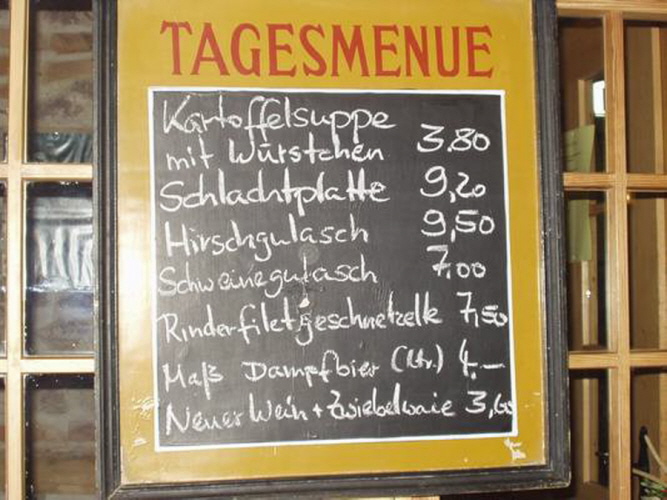 TAGESMENUE
Kartoffelsuppe
mit Würstchen 3.80
Schlachtplatte 9,20
Hirschgulasch 9,50
Schweinegulasch 7,00
Rinderfiletgeschnetzelte 7,50
Maß Dampfbier (Ltr.) 4.—
Neuer Wein + Zwiebelwaie 3,60